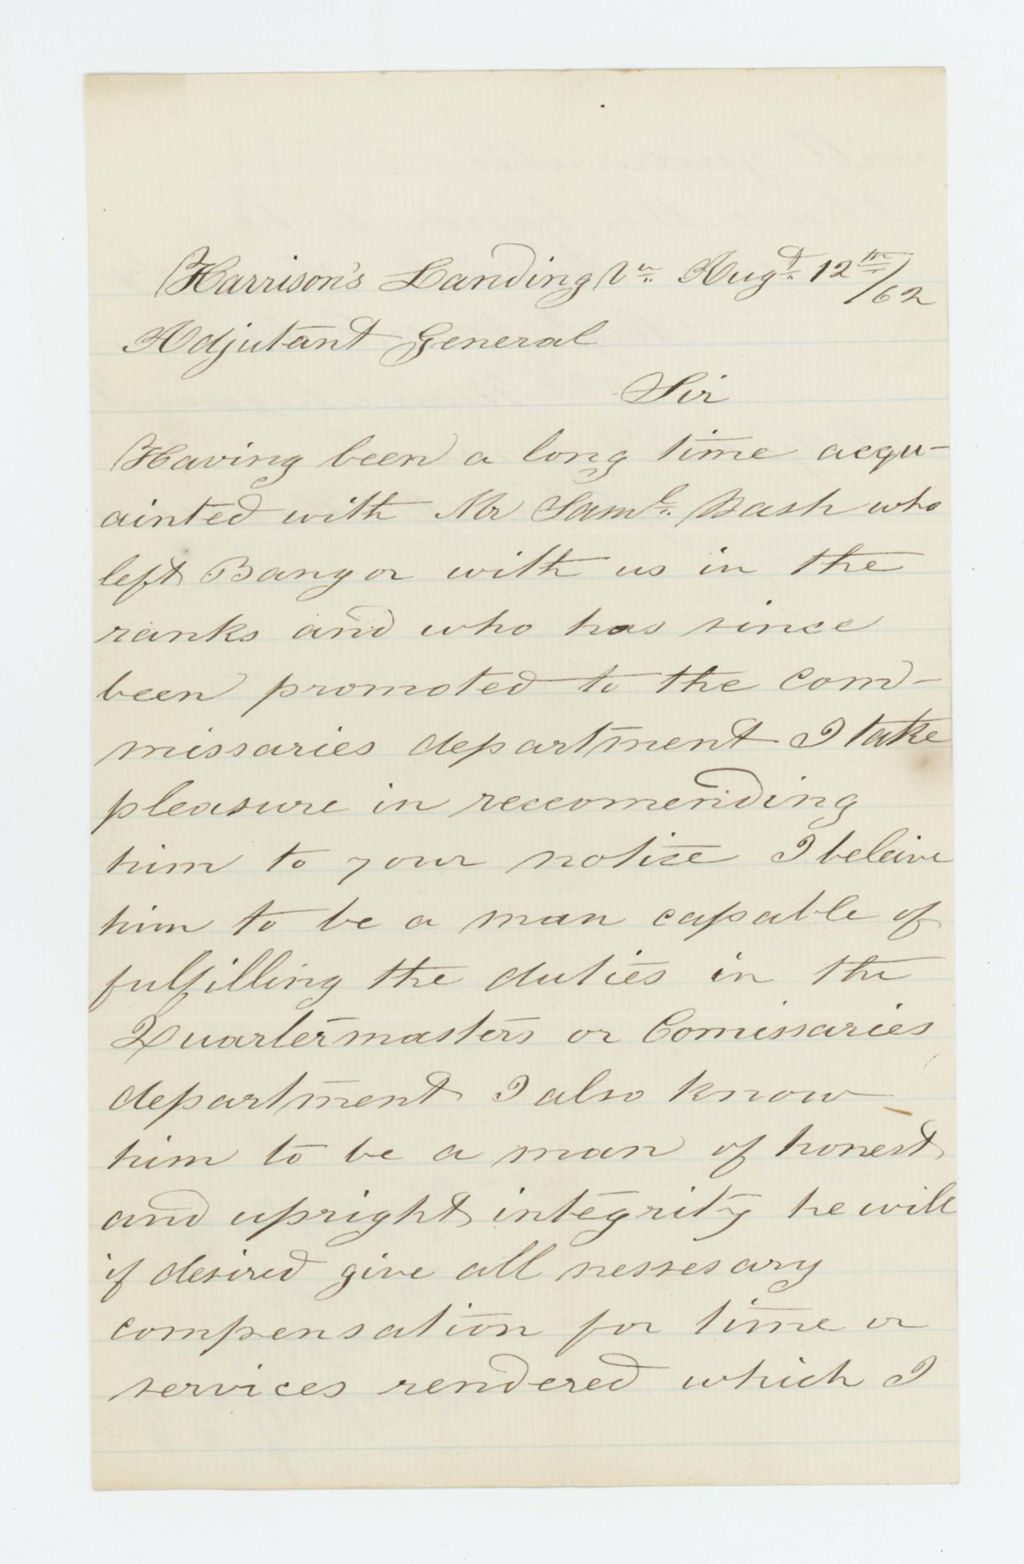 Harrison's Landing Va. Augt. 12th/62
Adjutant General
Sir
Having been a long time acqu-
ainted with Mr Saml. Nash who
left Bangor with us in the
ranks and who has since
been promoted to the Com-
missaries department I take
pleasure in reccomending
him to your notice I beleive
him to be a man capable of
fulfilling the duties in the
Quartermasters or Comissaries
department I also know
him to be a man of honest
and upright integrity he will
if desired give all nessesary
compensation for time or
services rendered which I